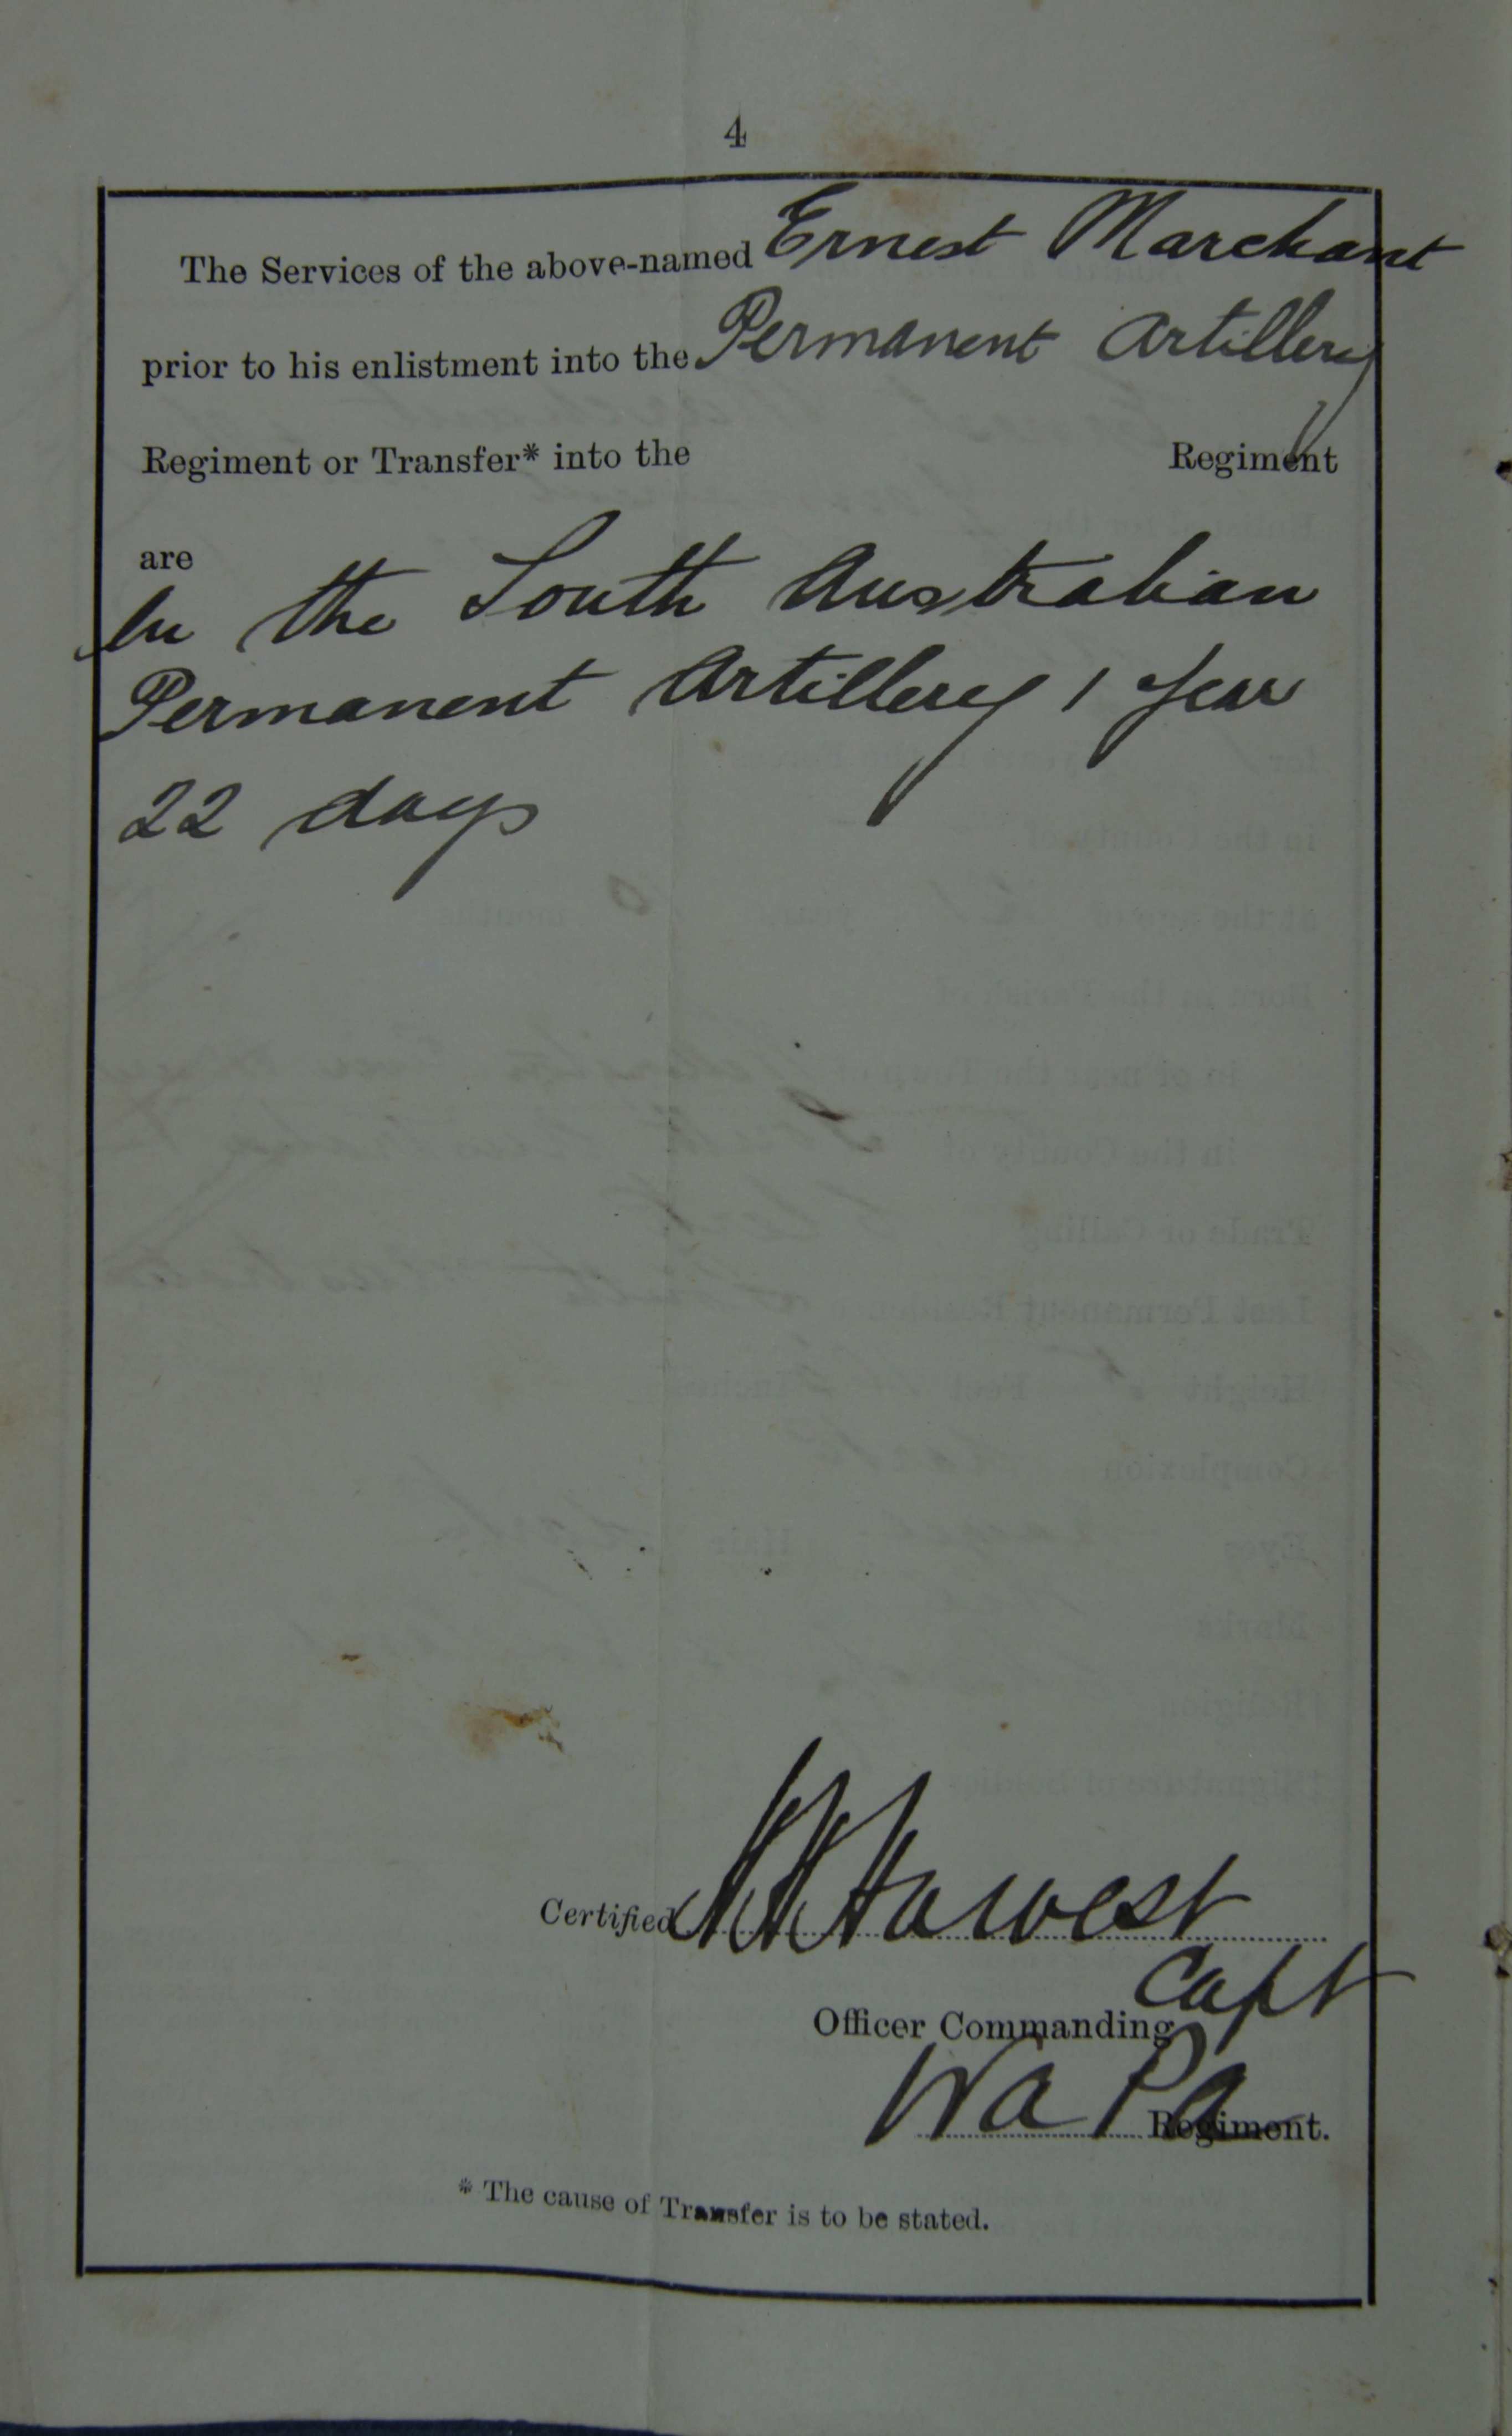 4
The Services of the above-named Ernest Marchant
prior to his enlistment into the Permanent Artillery
Regiment or Transfer* into the Regiment
are
In the South Australian
Permanent Artillery 1 year
22 days
Certified Hawest
Capt
Officer Commanding
W a P a
Regiment.
* The cause of Transfer is to be stated.